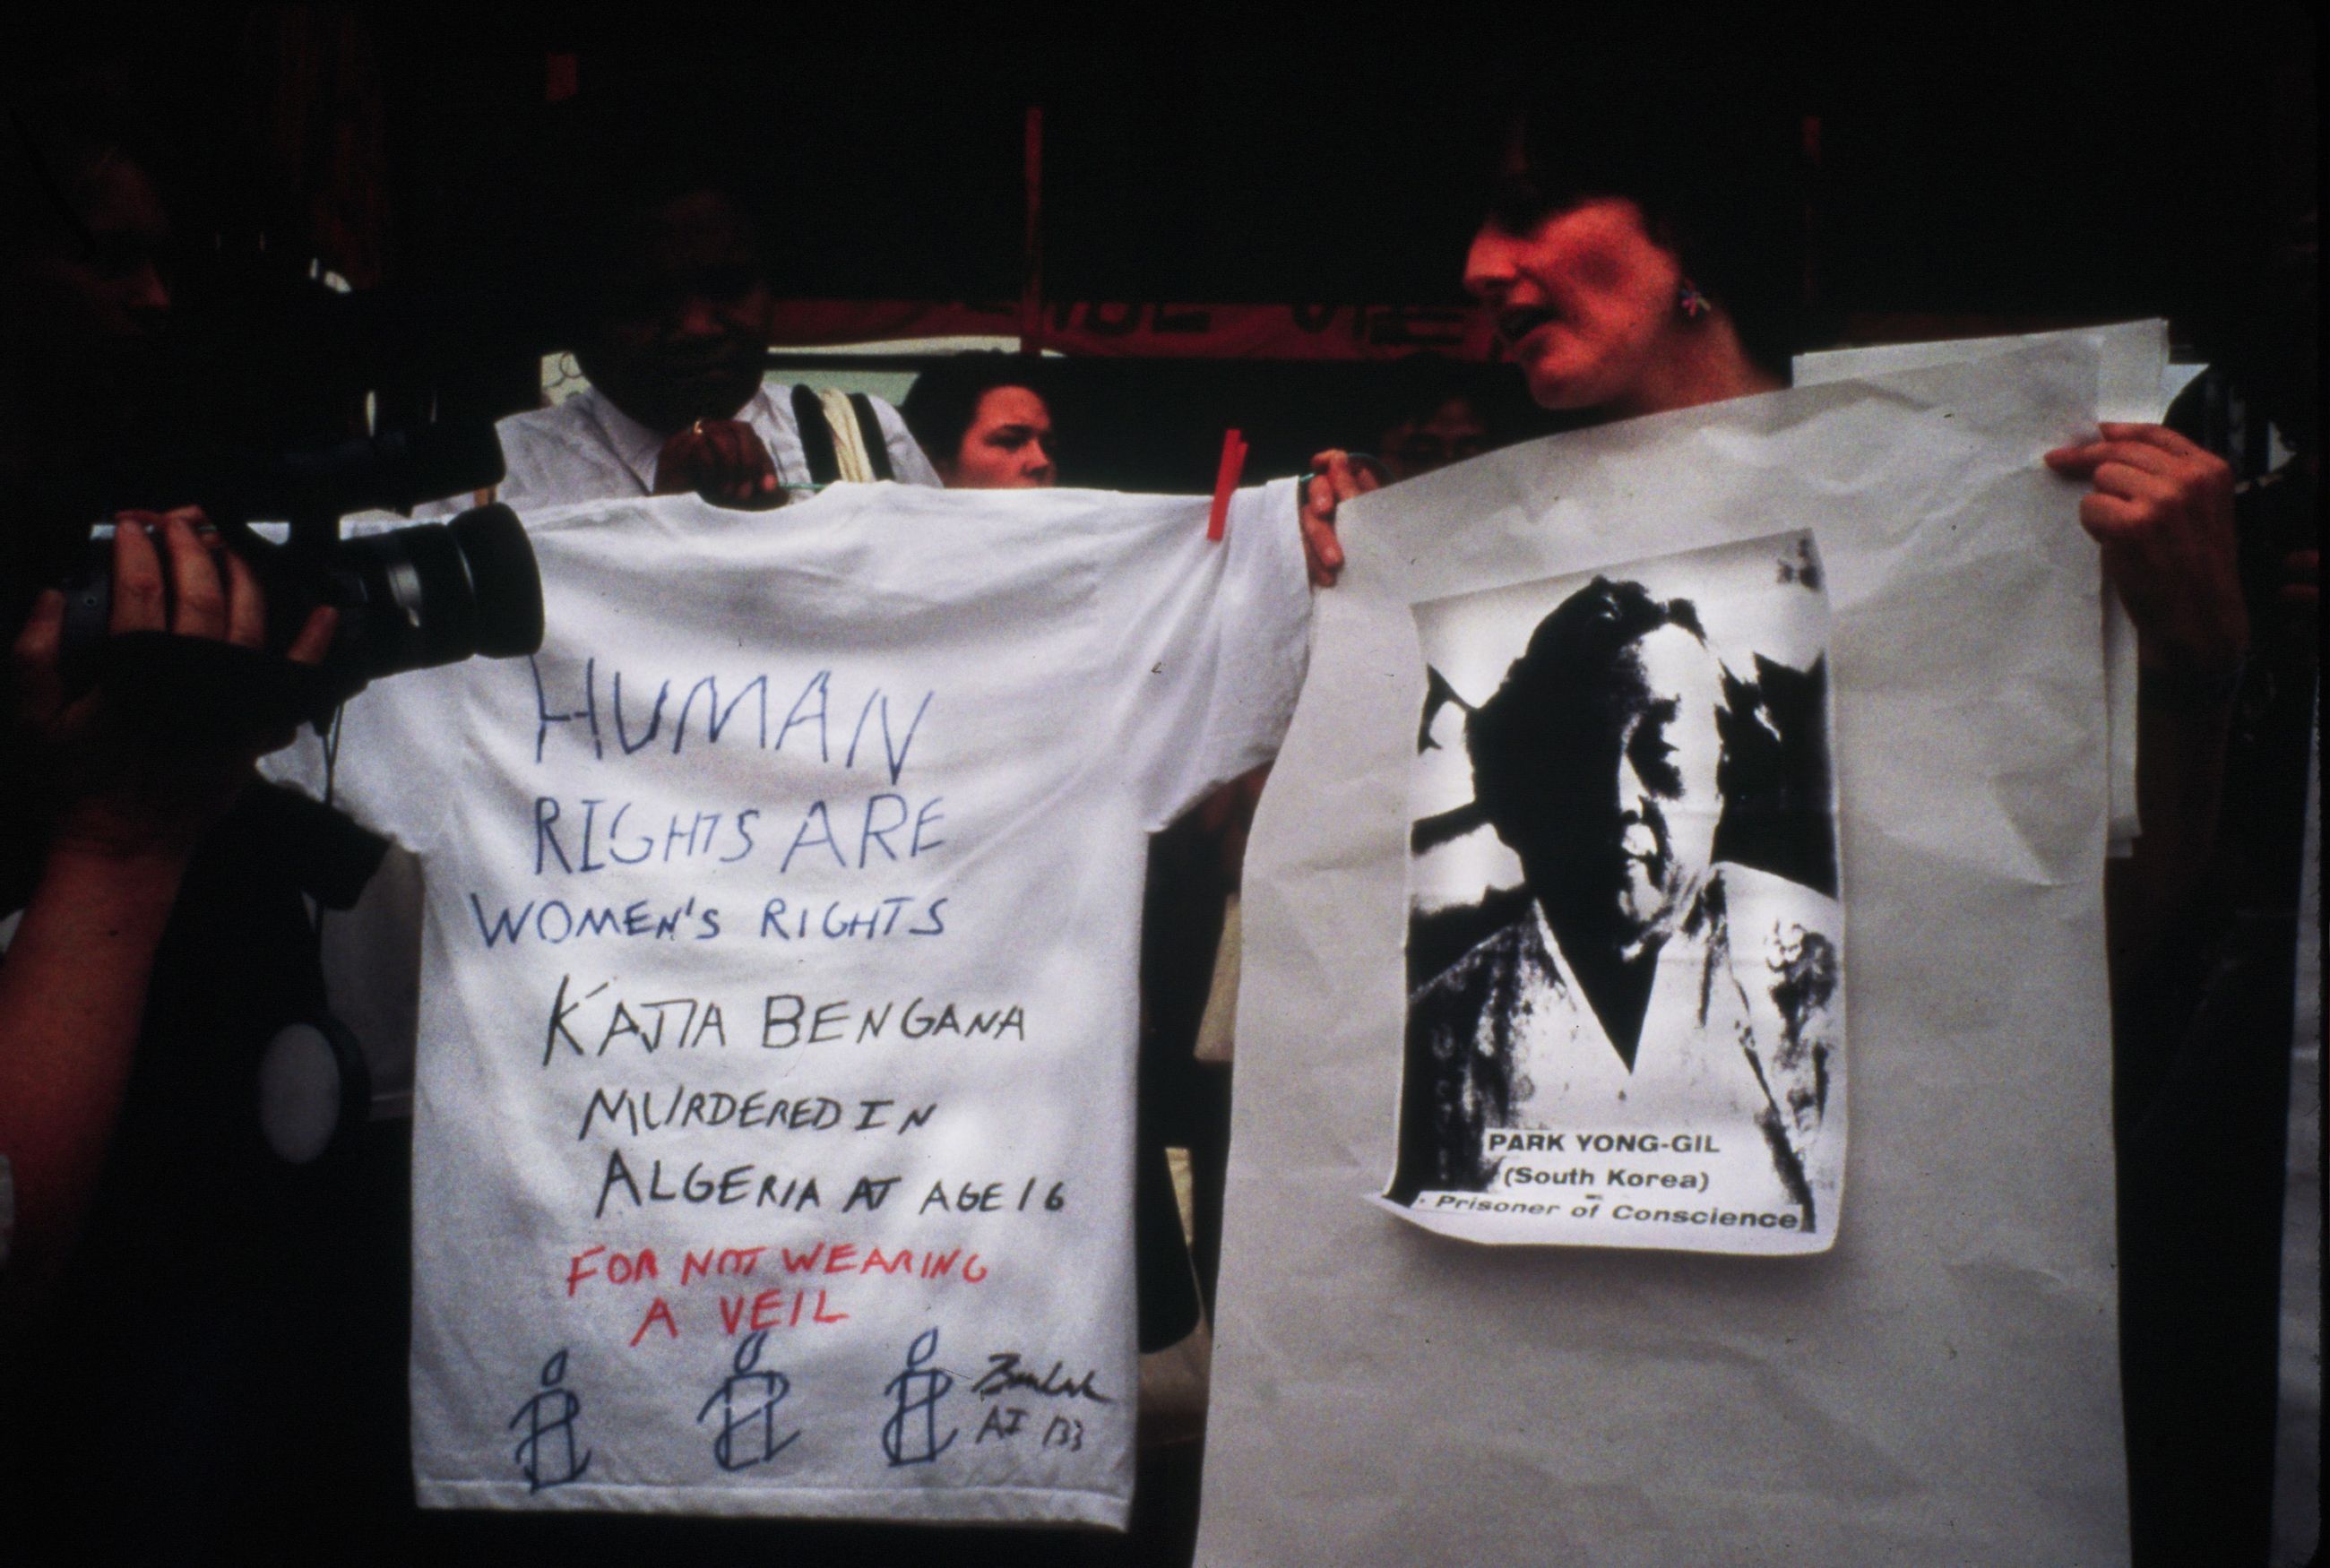 HUMAN
RIGHTS ARE
WOMEN'S RIGHTS
KATIA BENGANA
MURDERED IN
ALGERIA AT AGE 16
FOR NOT WEARING
A VEIL
AI 133
PARK YONG-GIL
(South Korea)
Prisoner of Conscience